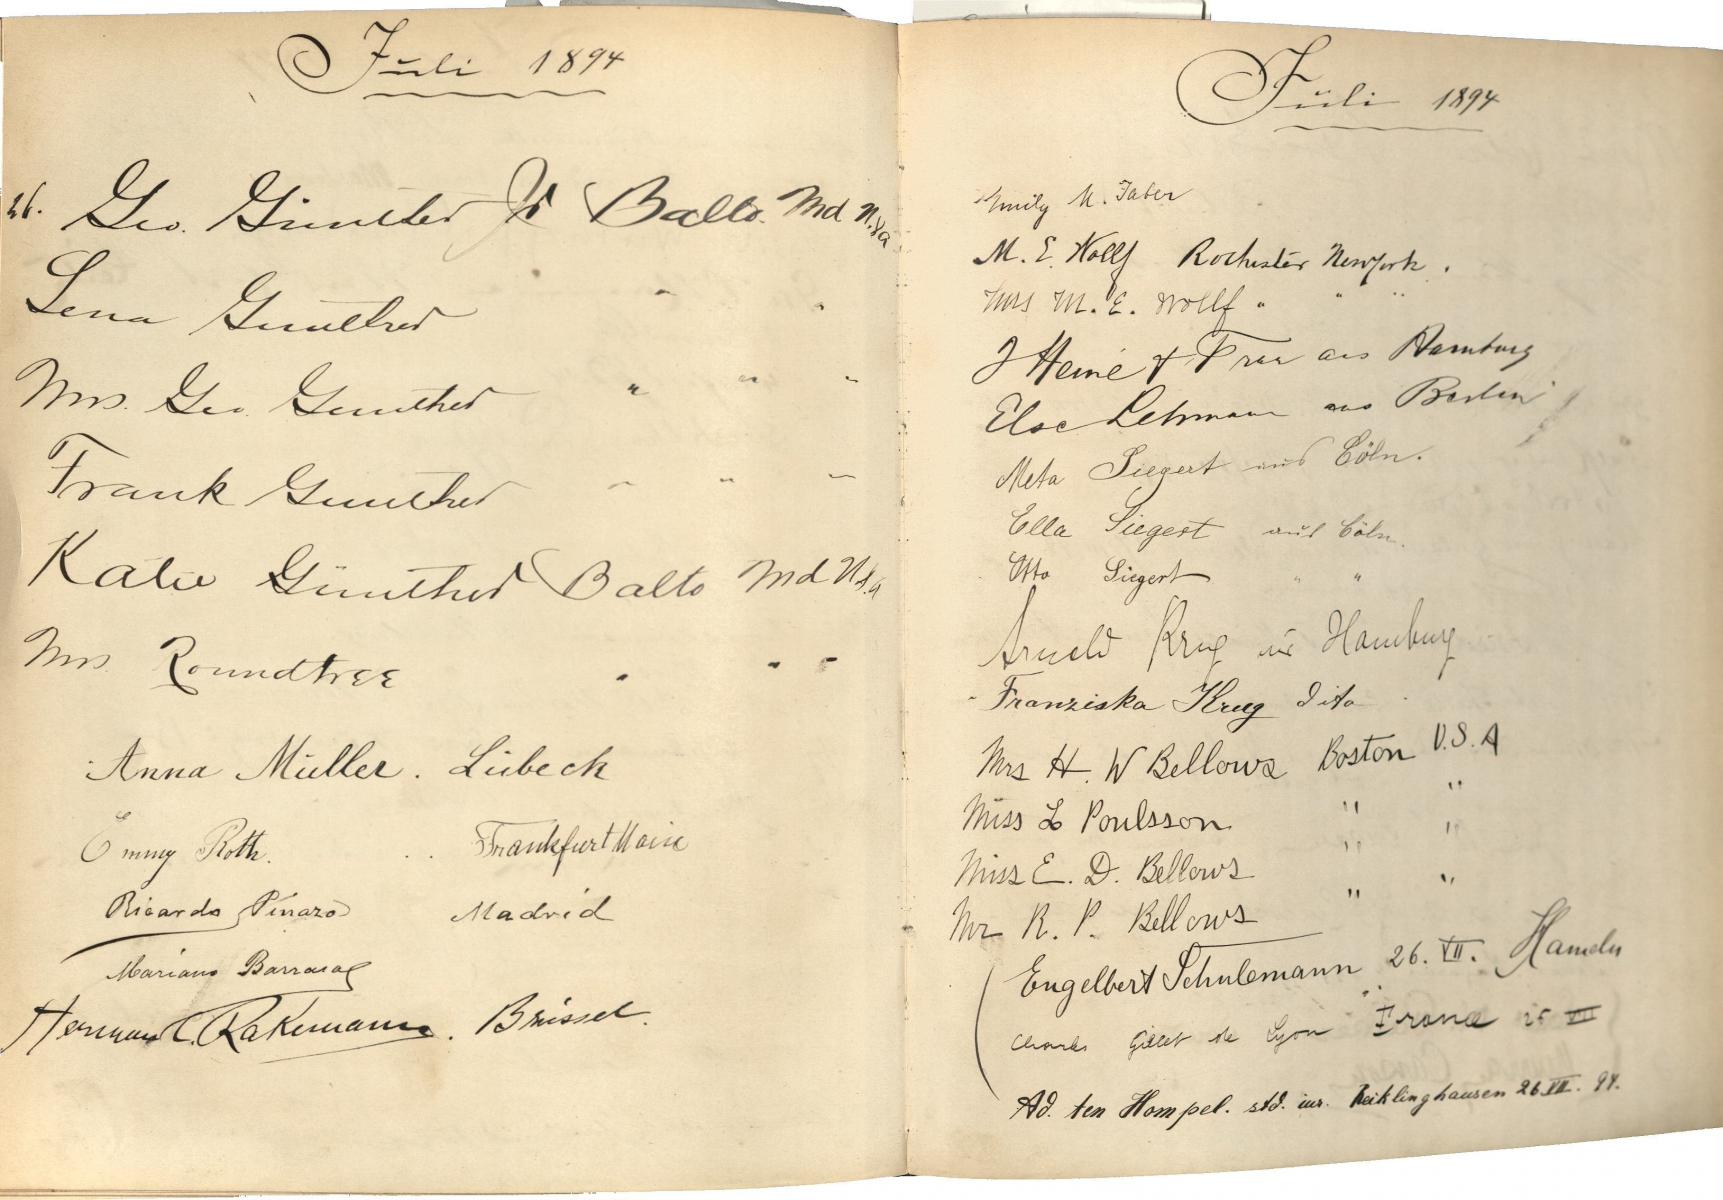 Juli 1894
26. Geo. Günther Jr Balto. Md U.S.a
Lena Gunther " "
Mrs. Geo. Gunther " " "
Frank Gunther " " "
Katie Günther Balto Md U.S.a
Mrs Roundtree " " "
Anna Müller. Lübeck
Emmy Roth. Frankfurt Main
Ricardo Pinazo Madrid
Mariano Barrasa
Herman C. Rakemann. Brüssel.
Juli 1894
Emily M. Taber
M. E. Wollf Rochester Newyork.
Mrs M. E. Wollf " " "
J Heine & Frau aus Hamburg
Else Lehmann aus Berlin
Meta Siegert aus Cöln.
Ella Siegert aus Cöln.
Otto Siegert " "
Arnold Krug aus Hamburg
Franziska Krug dito
Mrs H. W Bellows Boston U.S.A
Miss L Poulsson " "
Miss E. D. Bellows " "
Mr R. P. Bellows " "
Engelbert Schulemann 26. VII. Hameln
Charles Gillet de Lyon 26 VII
Ad. ten Hompel. std. iur. Reiklinghausen 26.VII. 94.